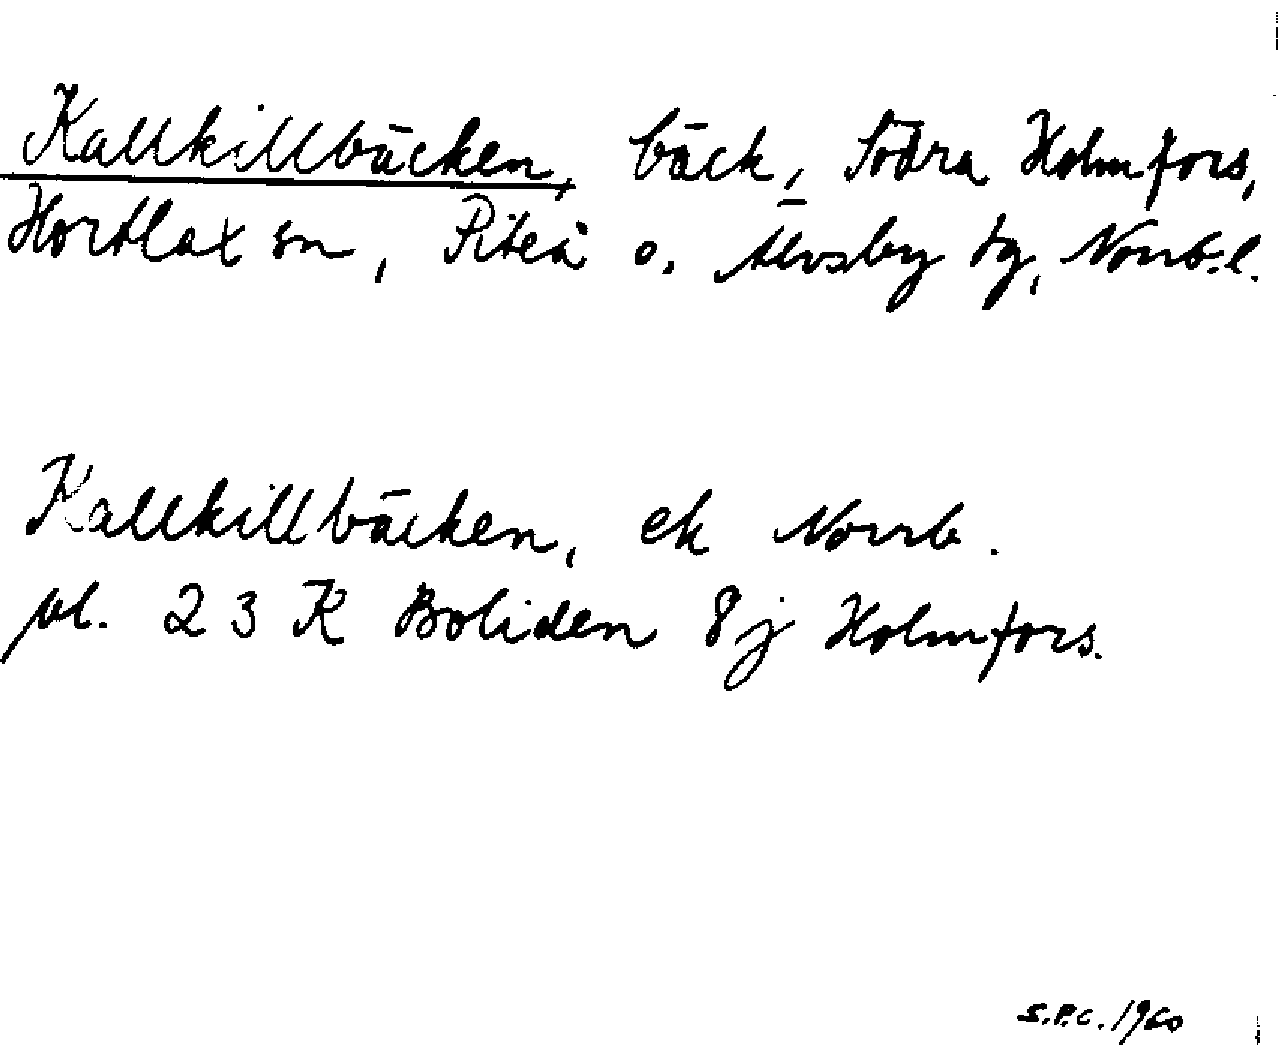 Kallkillbäcken, bäck, Södra Holmfors,
Hortlax sn, Piteå o. Älvsby tg, Norrb. l.
Kallkillbäcken, ek Norrb.
bl. 23 K Boliden 8j Holmfors.
S.P.C. 1960